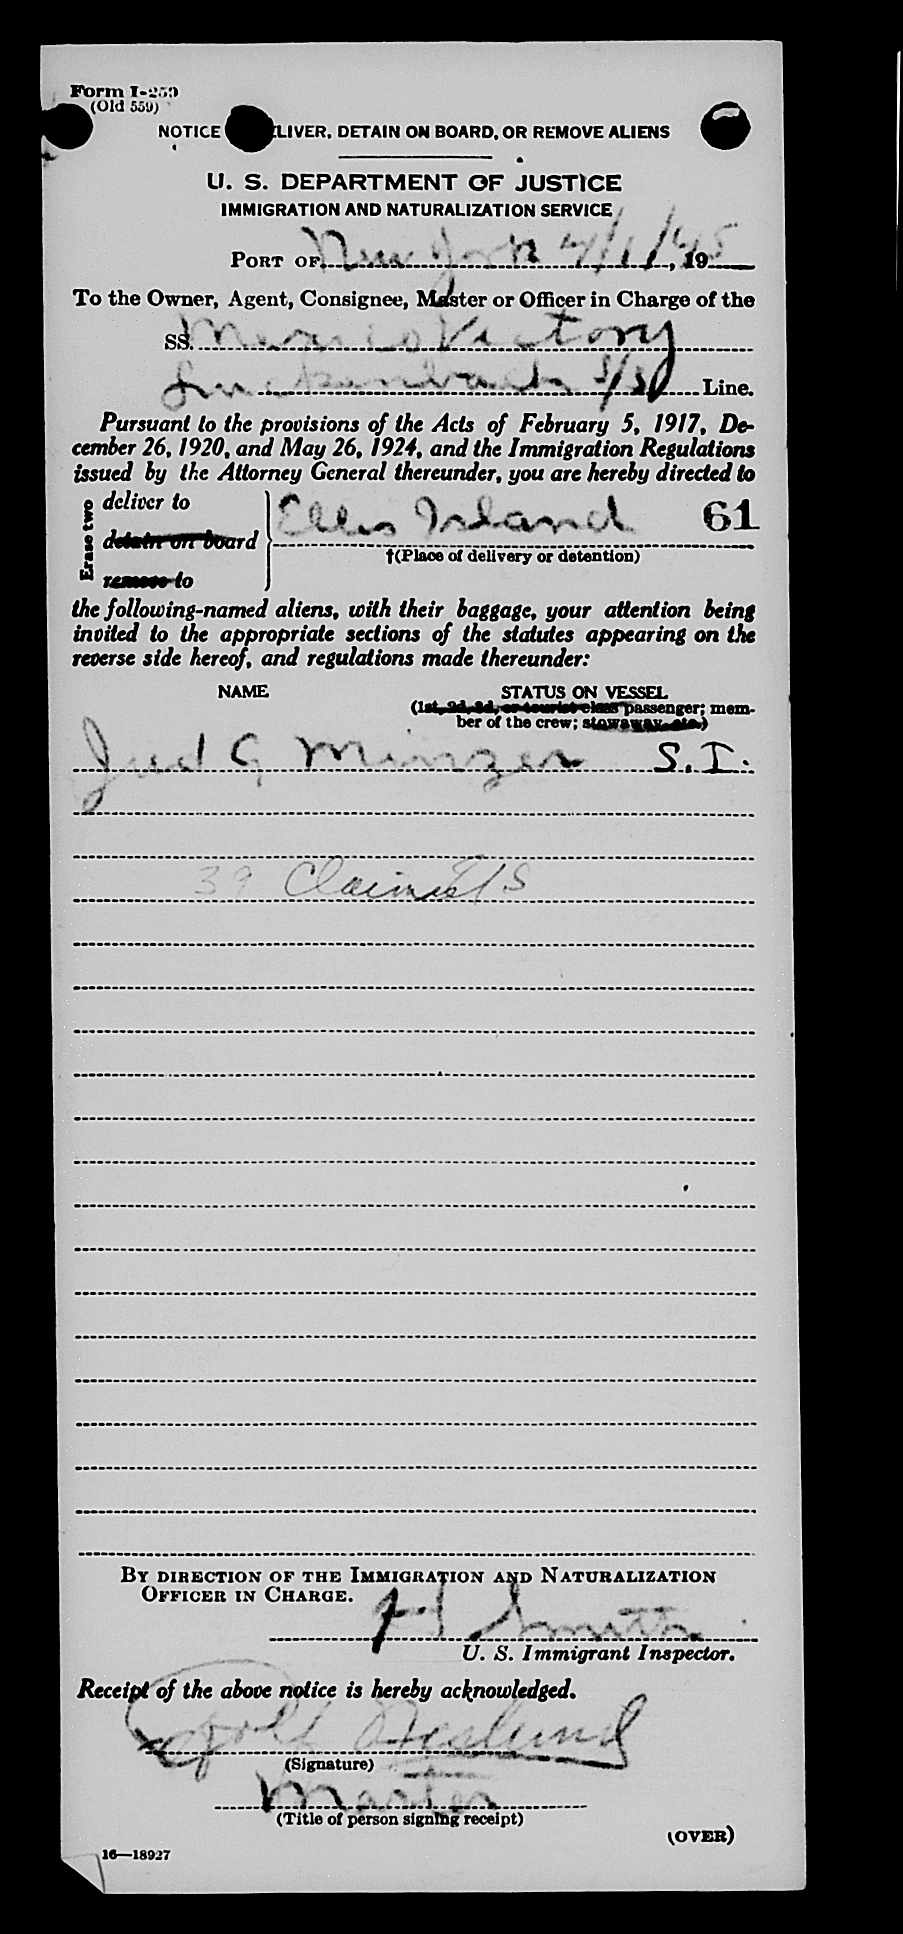 Form I-259
(Old 559)
NOTICE LIVER, DETAIN ON BOARD, OR REMOVE ALIENS
U. S. DEPARTMENT OF JUSTICE
IMMIGRATION AND NATURALIZATION SERVICE
PORT OF New York 4/1/45, 19
To the Owner, Agent, Consignee, Master or Officer in Charge of the
SS. Mexico Victory
Luckenbach S/S Line.
Pursuant to the provisions of the Acts of February 5, 1917, De-
cember 26, 1920, and May 26, 1924, and the Immigration Regulations
issued by the Attorney General thereunder, you are hereby directed to
Erase two
deliver to
detain on board
remove to
Ellis Island 61
†(Place of delivery or detention)
the following-named aliens, with their baggage, your attention being
invited to the appropriate sections of the statutes appearing on the
reverse side hereof, and regulations made thereunder:
NAME STATUS ON VESSEL
(1st, 2d, 3d, or tourist class passenger; mem-
ber of the crew; stowaway, etc.)
Jud G Minzer S.I.
39 Claims
BY DIRECTION OF THE IMMIGRATION AND NATURALIZATION
OFFICER IN CHARGE.
Smith
U. S. Immigrant Inspector.
Receipt of the above notice is hereby acknowledged.
(Signature)
Master
(Title of person signing receipt)
(OVER)
16—18927